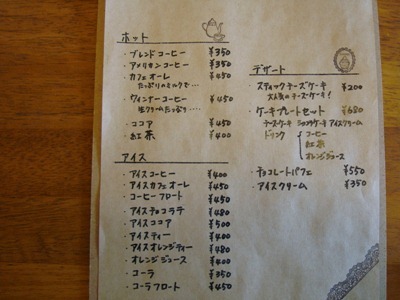 ホット
・ブレンドコーヒー ¥350
・アメリカンコーヒー ¥350
・カフェオーレ ¥450
たっぷりのミルクで…
・ウィンナーコーヒー ¥450
生クリームたっぷり…
・ココア ¥450
・紅茶 ¥400
アイス
・アイスコーヒー ¥400
・アイスカフェオーレ ¥450
・コーヒーフロート ¥450
・アイスチョコラテ ¥480
・アイスココア ¥500
・アイスティー ¥400
・アイスオレンジティー ¥480
・オレンジジュース ¥400
・コーラ ¥350
・コーラフロート ¥450
デザート
・スティックチーズケーキ ¥200
大人気のチーズケーキ!
・ケーキプレートセット ¥680
チーズケーキ ショコラケーキ アイスクリーム
ドリンク コーヒー
紅茶
オレンジジュース
・チョコレートパフェ ¥550
・アイスクリーム ¥350